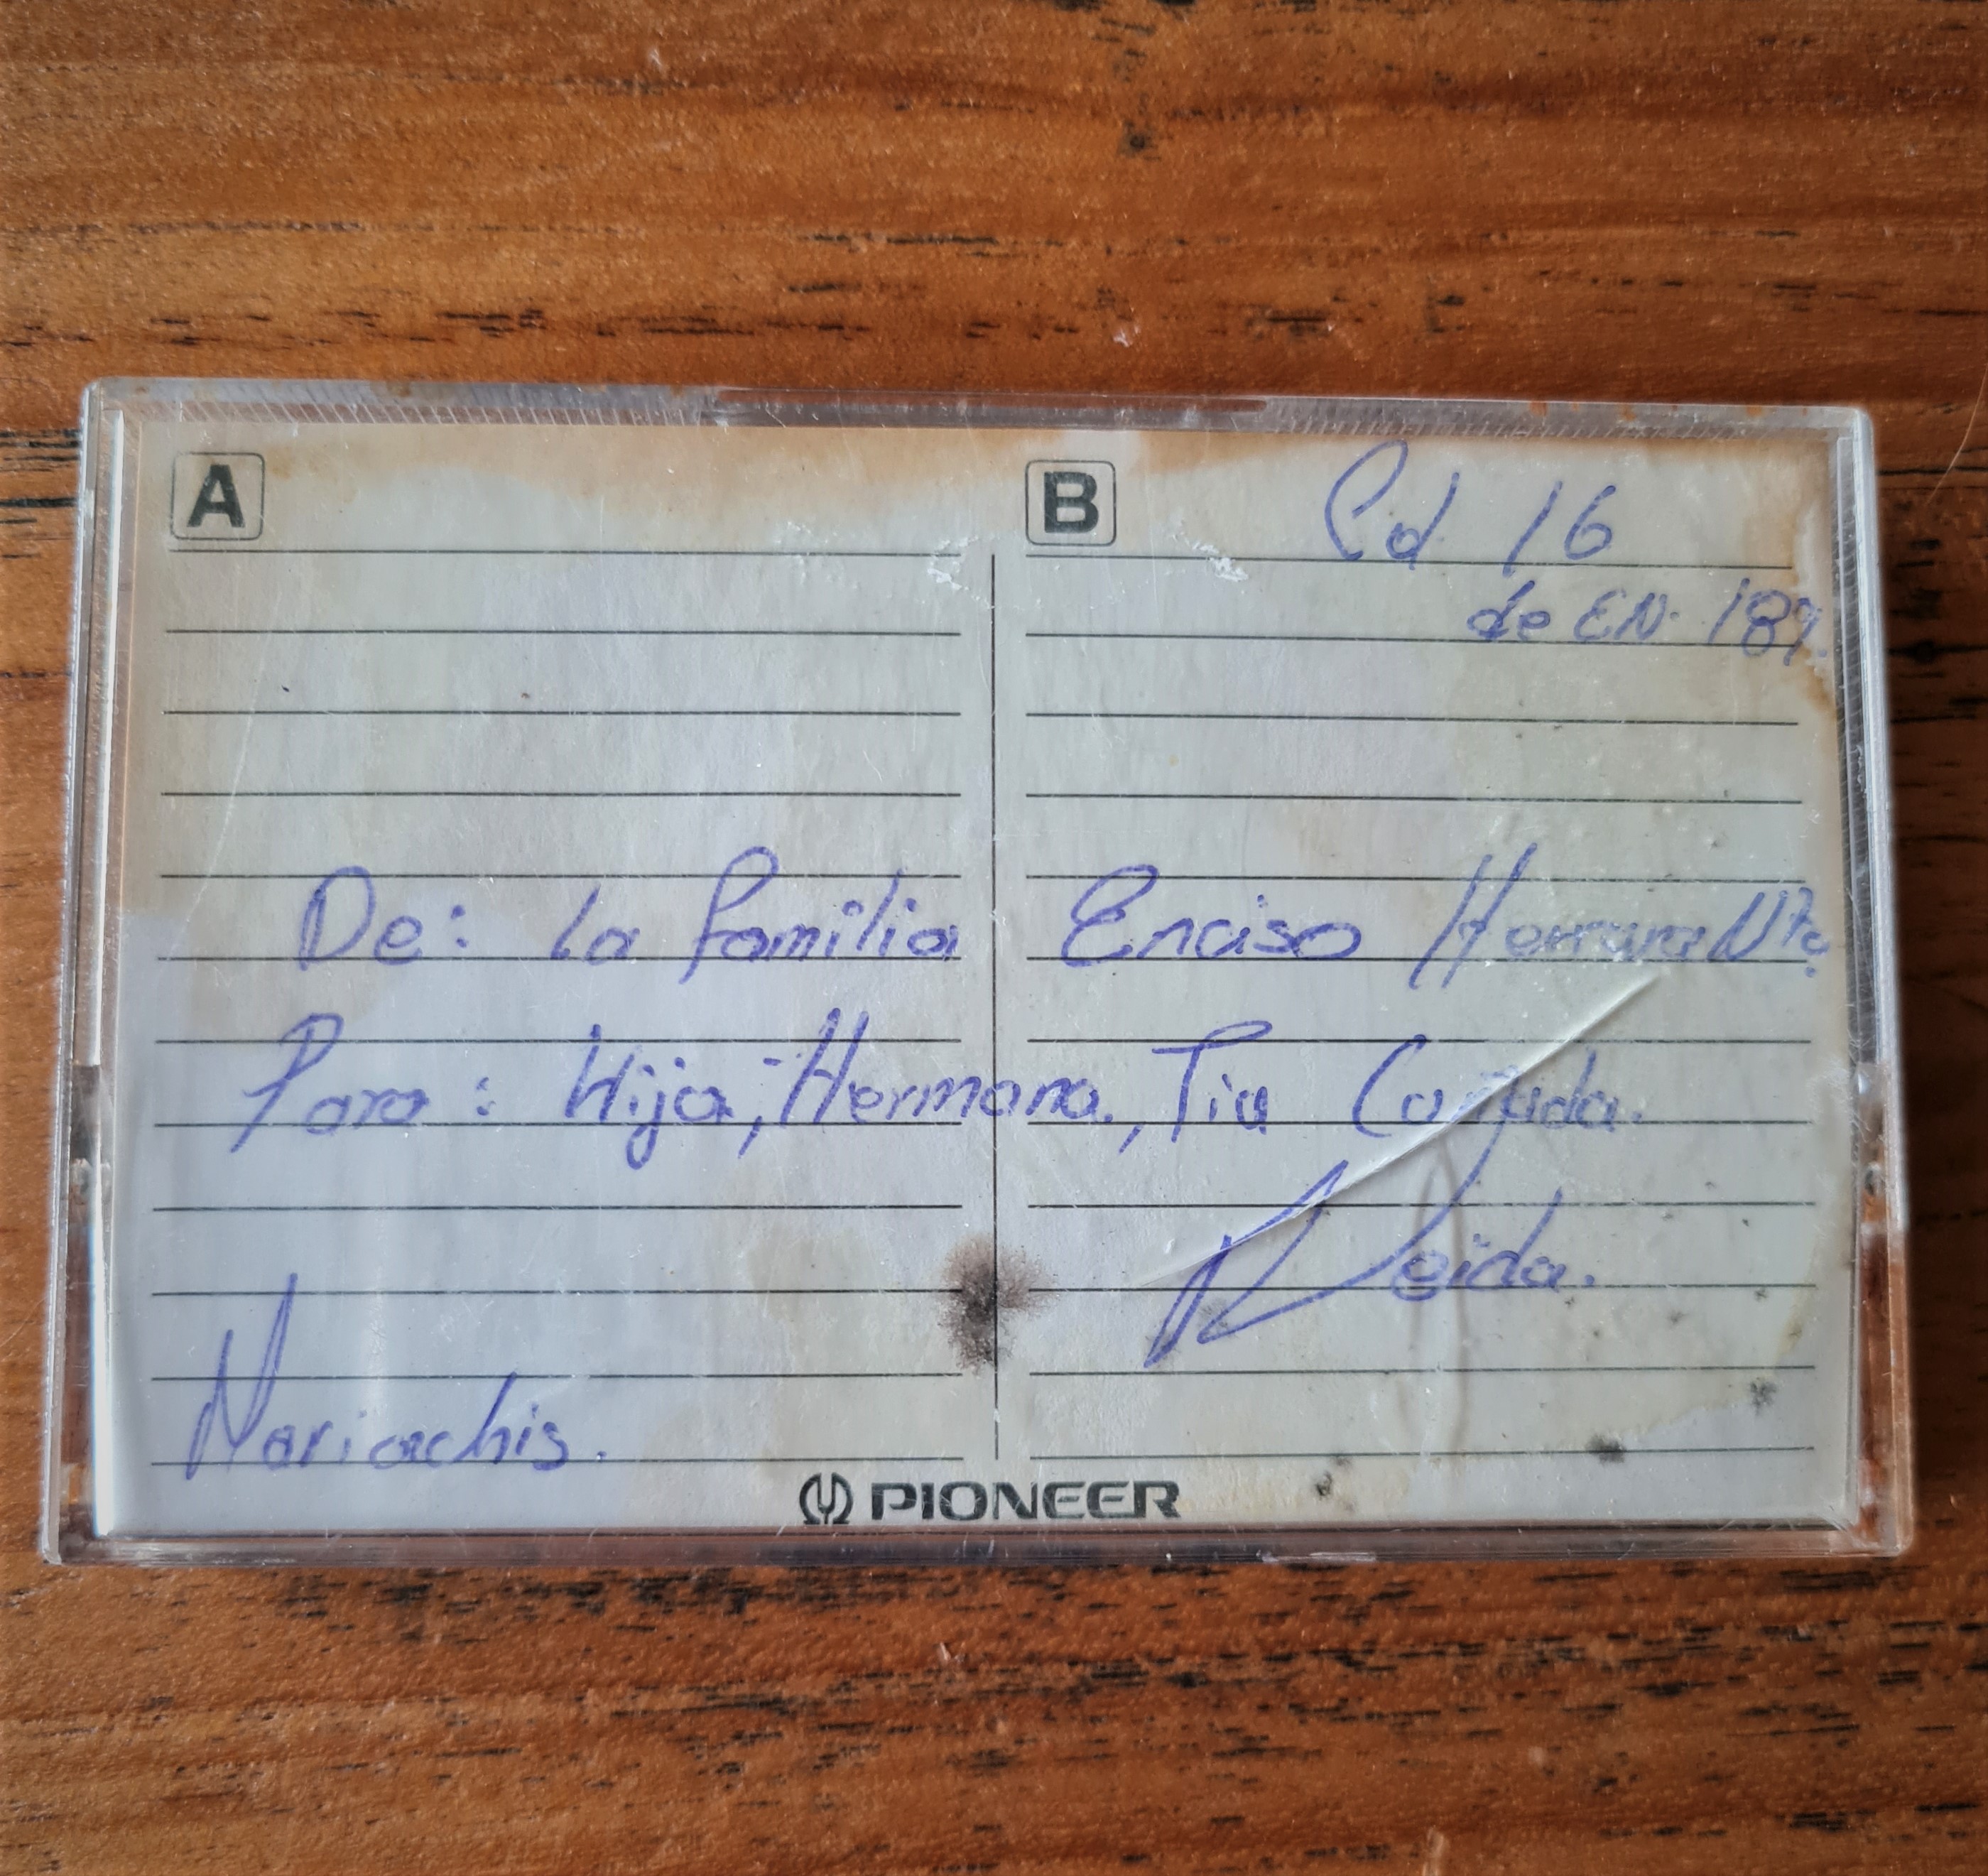 A
B
Cd 16
de EN. 189.
De: la familia Enciso Herrera
Para: Hija, Hermana, Tia Cuñada.
Neida.
Mariachis.
PIONEER